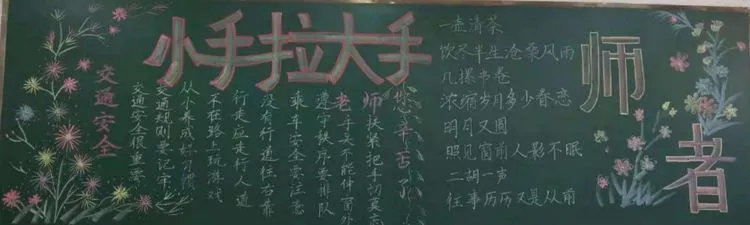 小手拉大手
交通安全
交通安全很重要
交通规则要记牢
从小养成好习惯
不在路上玩游戏
行走应走行人道
没有行道往右靠
乘车安全要注意
遵守秩序要排队
手头不能伸窗外
扶紧把手切莫忘
老师您辛苦了
一壶清茶
饮尽半生沧桑风雨
几摞书卷
浓缩岁月多少眷恋
明月又圆
照见窗前人影不眠
二胡一声
往事历历又是从前
师者